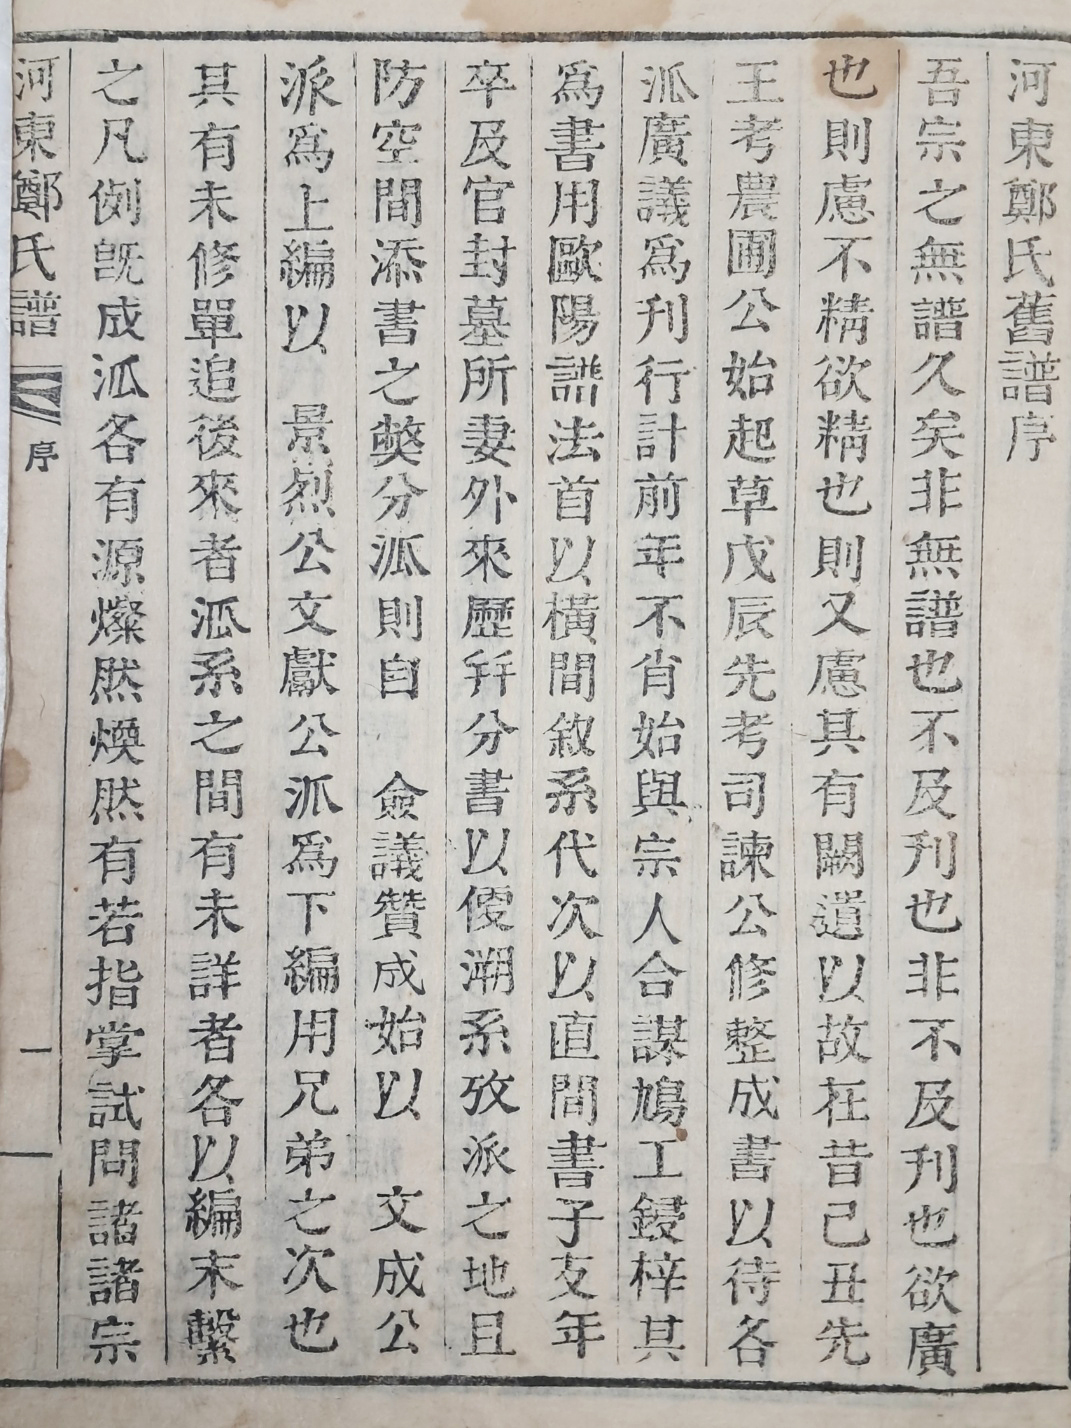 河東鄭氏舊譜序
吾宗之無譜久矣非無譜也不及刋也非不及刋也欲廣
也則慮不精欲精也則又慮其有闕遺以故在昔己丑先
王考農圃公始起草戊辰先考司諫公修整成書以待各
派廣議爲刋行計前年不肖始與宗人合謀鳩工鋟梓其
爲書用歐陽譜法首以橫間敘系代次以直間書子女年
卒及官封墓所妻外來歷幷分書以便溯系攷派之地且
防空間添書之獘分派則自 僉議贊成始以 文成公
派爲上編以 景烈公文獻公派爲下編用兄弟之次也
其有未修單追後來者派系之間有未詳者各以編末繫
之凡例旣成派各有源燦然煥然有若指掌試問諸諸宗
河東鄭氏譜 序 一